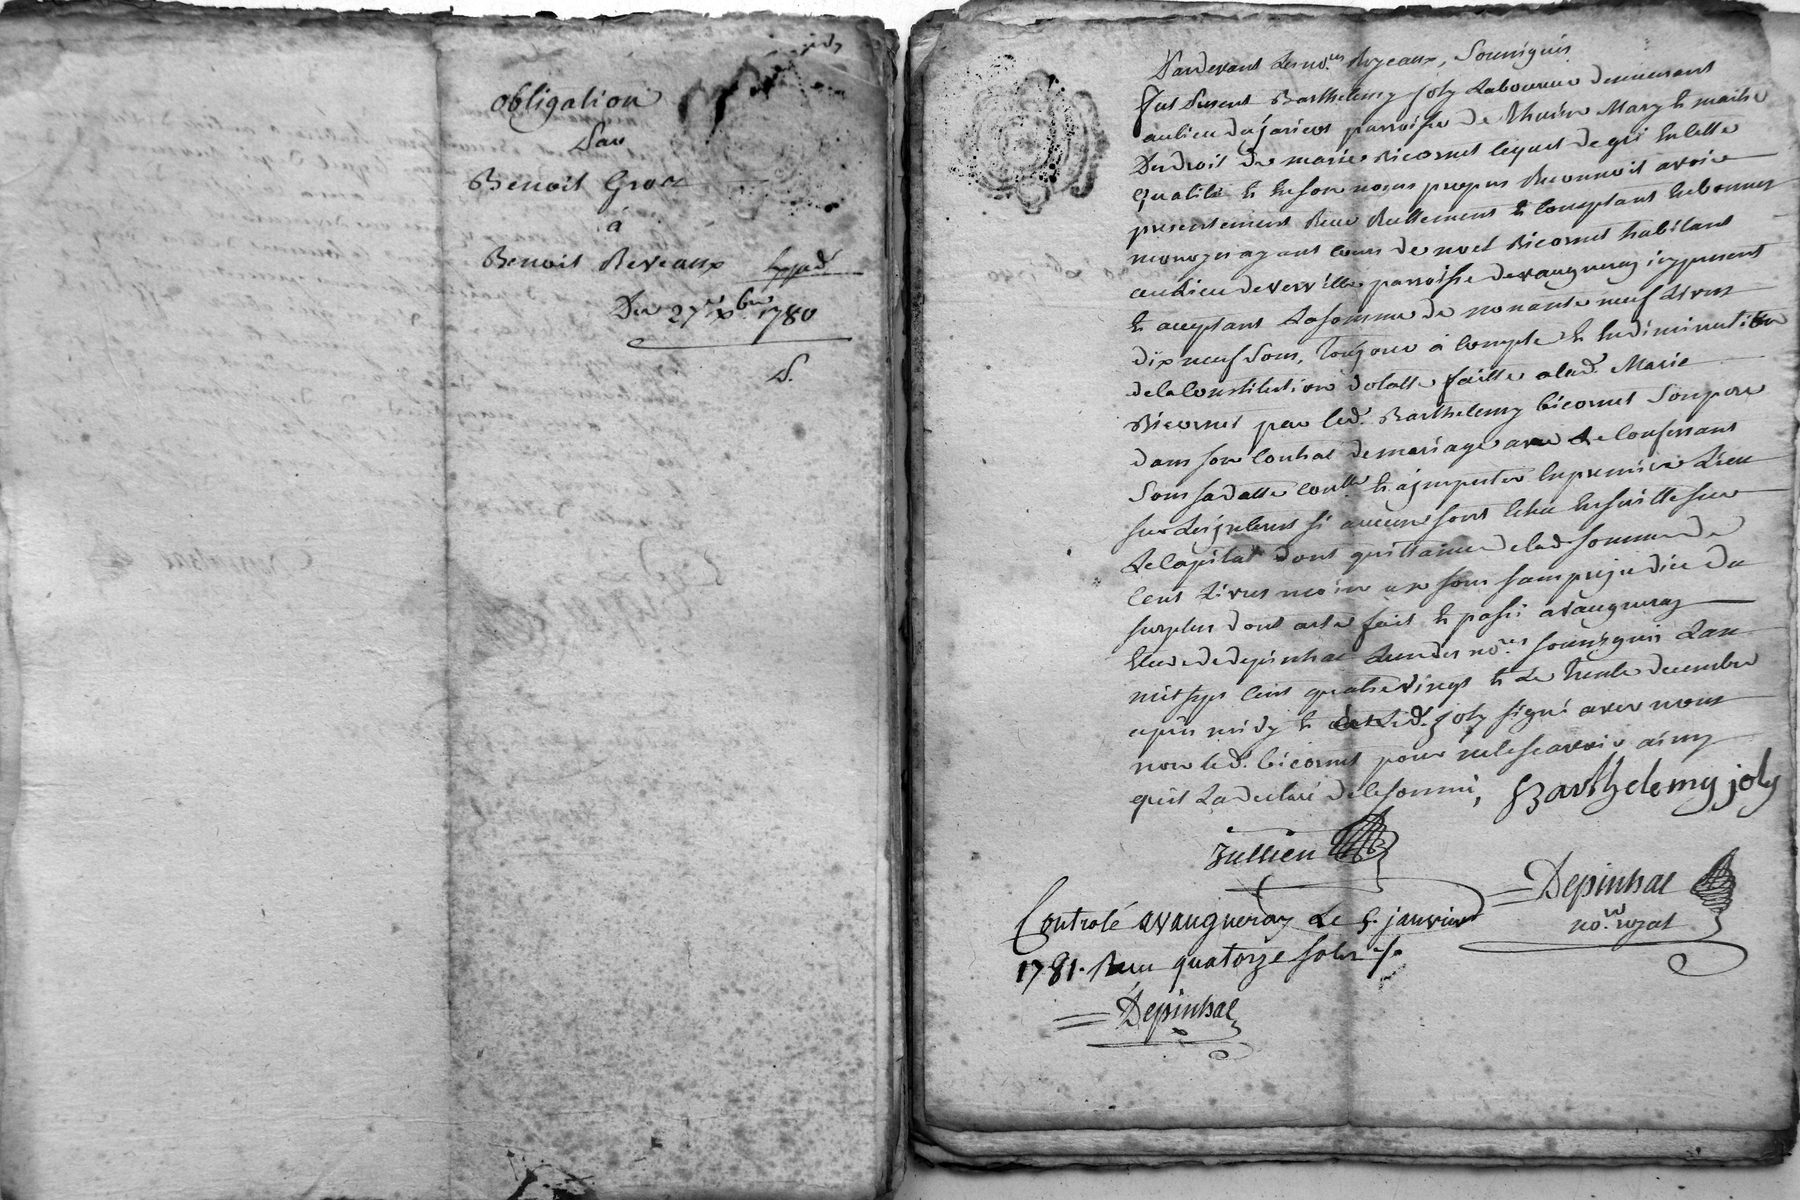 obligation
Par
Benoit Gros
à
Benoit Reveaux Expéd
Du 27e xbre 1780
S.
Pardevant Les no.res Royeaux, Soussignés
fut present Barthelemy joly Laboureur demeurant
au lieu du jaricot parroisse de Thurins Mary et maitre
Du droit de marie Bicornet lequel de gré En cette
qualité Et En son nom propre Reconnoit avoir
presentement Receu Reellement et Comptant En bonnes
monoyes ayant cours de noel Bicornet habitant
au Lieu de verville parroisse de vaugneray icy present
Et acceptant La somme de nonante neuf Livres
dix neuf Sous, Toujours à Compte et En diminution
de la Constitution dotalle faitte a lad. Marie
Bicornet par led. Barthelemy bicornet Son pere
dans son Contrat de mariage avec Le Confessant
Sous sa datte Con.lle Et a jmputer En premier Lieu
sur Les jnterets si aucuns sont dus Ensuitte sur
Le Capital dont quittance de lad. somme de
Cent Livres moins un sous sans prejudice du
surplus dont acte fait et passé a vaugneray
Etude de Depinhac L'un des no.res soussignés L'an
mil sept Cent quatrevingt et Le Trente decembre
après midy Et a Led. joly signé avec nous
non led. bicornet pour ne le scavoir ainsy
qu'il L'a declaré de ce sommé, Barthelemy joly
Jullien
Depinhac
no.re royal
Controlé a vaugneray Le 5. janvier
1781. Reçu quatorze sols
Depinhac